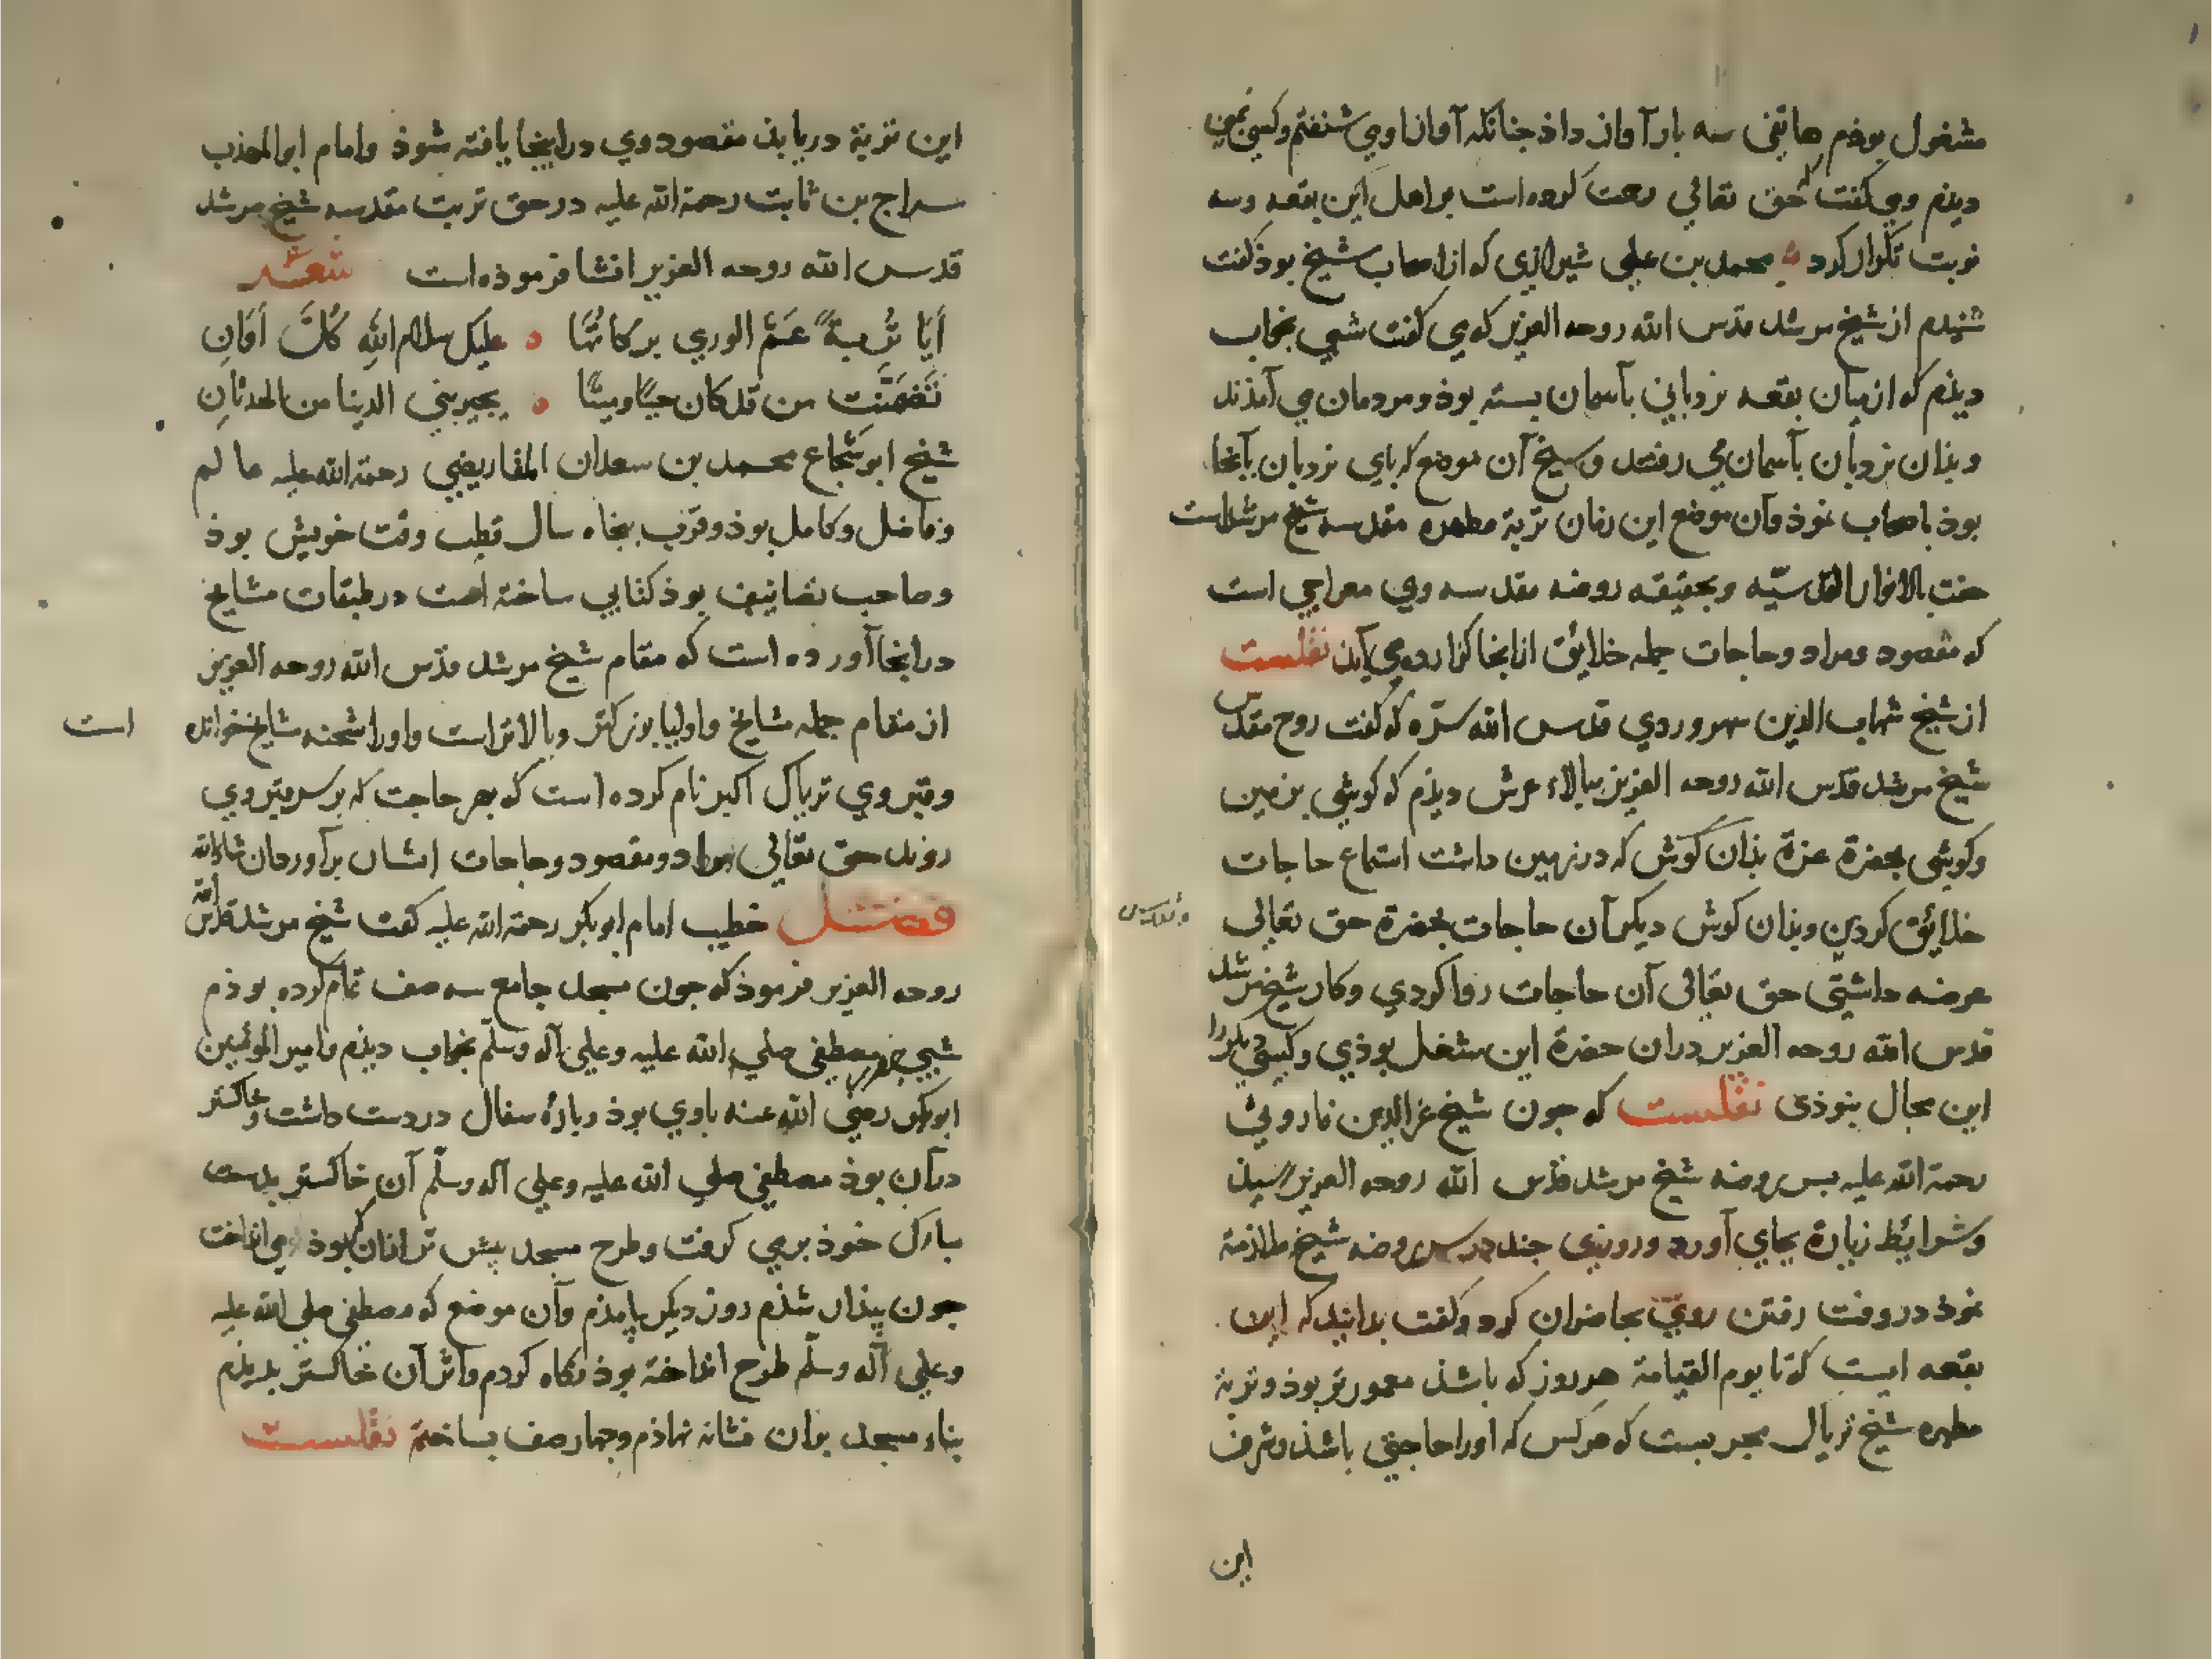 مشغول بوذم هاتفی سه بار آواز داذ جنانکه آواز اومی شنفتم وکسی نمی
دیذم ومی کفت که حق تعالی رحمت کرده است بر اهل این بقعه وسه
نوبت تکرار کرد محمد بن علی شیرازی که از اصحاب شیخ بوذ کفت
شنیدم از شیخ مرشد قدس الله روحه العزیز که می کفت شبی بخواب
دیذم که از میان بقعه نردبانی بآسمان بسته بوذ ومردمان می آمذند
وبذان نردبان بآسمان می رفتند وشیخ آن موضع که بای نردبان بآنجا
بوذ باصحاب نموذ وآن موضع این زمان تربة مطهره مقدسه شیخ مرشد است
حفت بالانوار القدسیّه وبحقیقه روضه مقدسه وی معراجی است
که مقصود ومراد وحاجات جمله خلائق از انجا کزارده می آید نقلست
از شیخ شهاب الدین سهروردی قدس الله سرّه که کفت روح مقدس
شیخ مرشد قدس الله روحه العزیز ببالاء عرش دیذم که کوشی بزمین
وکوشی بحضرة عزة بذان کوش که در زمین داشت استماع حاجات
خلائق کردی وبذان کوش دیکر آن حاجات بحضرة حق تعالی
عرضه داشتی حق تعالی آن حاجات روا کردی وکار شیخ مرشد
قدس الله روحه العزیز دران حضرة این شغل بوذی وکسی دیکر را
این مجال نبوذی نقلست که جون شیخ عزالدین فاروثی
رحمة الله علیه بسر روضه شیخ مرشد قدس الله روحه العزیز رسیذ
وشرایط زیارة بجای آورد وروزی جند در سر روضه شیخ ملازمة
نموذ در وقت رفتن روی بحاضران کرد وکفت بدانید که این
بقعه ایست که تا یوم القیامة هر روز که باشذ معمورتر بوذ وتربة
مطهره شیخ تریاک مجربست که هرکس که اورا حاجتی باشذ وشرف
این
این تربة دریابذ مقصود وی در اینجا یافته شوذ وامام ابو المهذب
سراج بن ثابت رحمة الله علیه در حق تربت مقدسه شیخ مرشد
قدس الله روحه العزیر انشا فرموذه است شعر
أيا تُربةً عَمَّ الوري بركاتُها علیک سلام اللهِ كُلَّ أَوَانِ
تَضَمَّنَت من قد كان حيًّا وميتًا يجير بني الدنيا من الحدثانِ
شیخ ابو شجاع محمد بن سعدان المقاریضی رحمة الله علیه عالم
وفاضل وکامل بوذ وقرب بنجاه سال قطب وقت خویش بوذ
وصاحب تصانیف بوذ کتابی ساخته است در طبقات مشایخ
در انجا آورده است که مقام شیخ مرشد قدس الله روحه العزیز
از مقام جمله مشایخ واولیا بزرکتر وبالاتر است واورا شحنه مشایخ خوانده
است
وقبر وی تریاک اکبر نام کرده است که بهر حاجت که بر سر قبر وی
روند حق تعالی مراد ومقصود وحاجات ایشان برآورد ان شاء الله
فصل خطیب امام ابوبکر رحمة الله علیه کفت شیخ مرشد قدس الله
روحه العزیر فرموذ که جون مسجد جامع سه صف تمام کرده بوذم
شبی مصطفی صلی الله علیه وعلی آله وسلّم بخواب دیذم وامیر المؤمنین
ابوبکر رضی الله عنه باوی بوذ وبارۀ سفال در دست داشت وخاکستر
در آن بوذ مصطفی صلی الله علیه وعلی آله وسلّم آن خاکستر بدست
مبارک خوذ برمی کرفت وطرح مسجد بیش تر ازان که بوذ می انداخت
جون بیذار شذم روز دیکر بیامذم وآن موضع که مصطفی صلی الله علیه
وعلی آله وسلّم طرح انداخته بوذ نکاه کردم واثر آن خاکستر بدیذم
بناء مسجد بران نشانه نهاذم وجهار صف بساختم نقلست